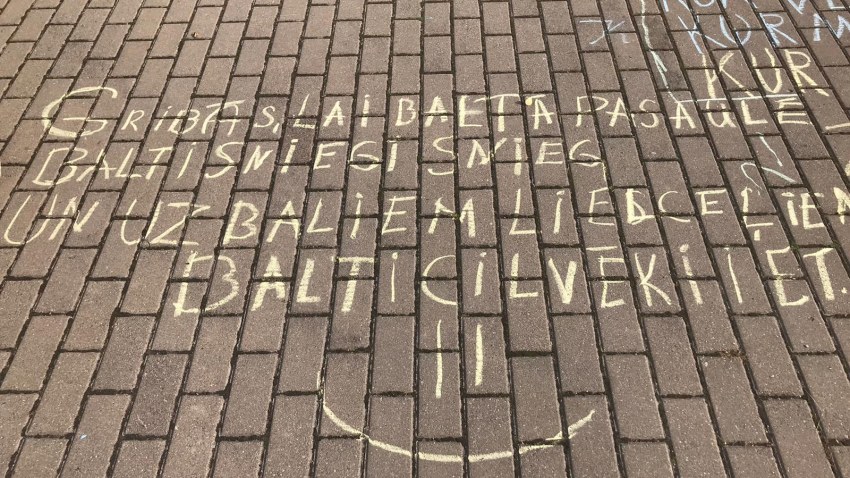 KUR
KUR
GRIBAS, LAI BALTĀ PASAULĒ
BALTI SNIEGI SNIEG
UN UZ BALIEM LIEDCEĻIEM
BALTI CILVĒKI IET.